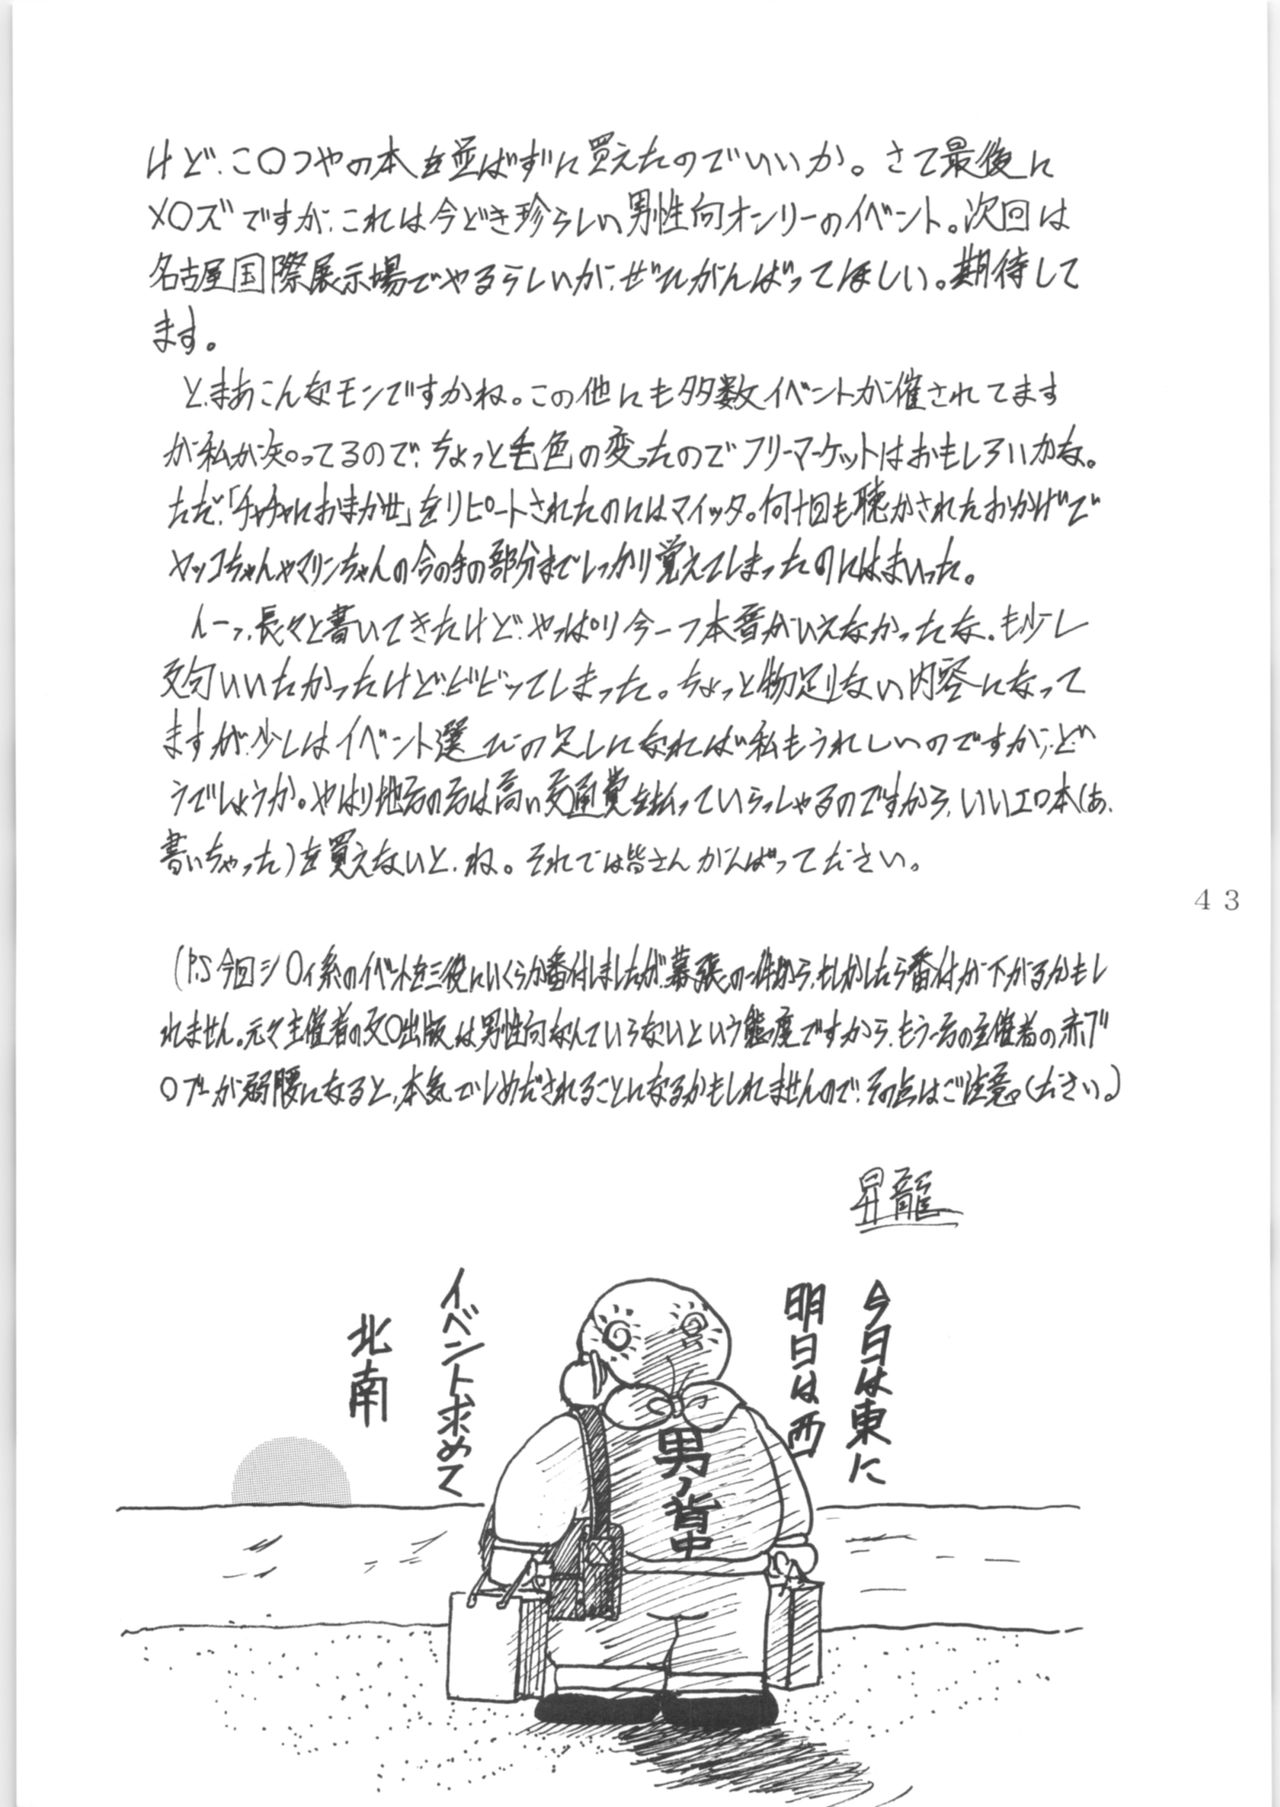 けど、こ〇つやの本を並ばずに買えたのでいいか。さて最後に
メ〇ズですが、これは今どき珍らしい男性向オンリーのイベント。次回は
名古屋国際展示場でやるらしいが、ぜひがんばってほしい。期待して
ます。
と、まあこんなモンですかね。この他にも多数イベントが催されてます
が私が知ってるので、ちょっと毛色の変ったのでフリーマーケットはおもしろいかな。
ただ、「チャチャにおまかせ」をリピートされたのにはマイッタ。何十回も聴かされたおかげで
ヤッコちゃんやマリンちゃんの今の手の部分までしっかり覚えてしまったのにはまいった。
んーっ、長々と書いてきたけど、やっぱり今一つ本音がいえなかったな。も少し
文句いいたかったけど、ビビってしまった。ちょっと物足りない内容になって
ますが、少しはイベント選びの足しになれば私もうれしいのですが、ど
うでしょうか。やはり地方の方は高い交通費を払っていらっしゃるのですから、いいエロ本(あ、
書いちゃった)を買えないと、ね。それでは皆さんがんばってください。
43
(P.S 今回シ〇ィ系のイベントを三役にいくらか番付しましたが、幕張の一件から、もしかしたら番付が下がるかもし
れません。元々主催者の文〇出版は男性向なんていらないという態度ですから、もう一方の主催者の赤ブ
〇ブーが弱腰になると、本気でしめだされることになるかもしれませんので、その点はご注意ください。)
昇龍
今日は東に
明日は西
イベント求めて
北南
男ノ背中